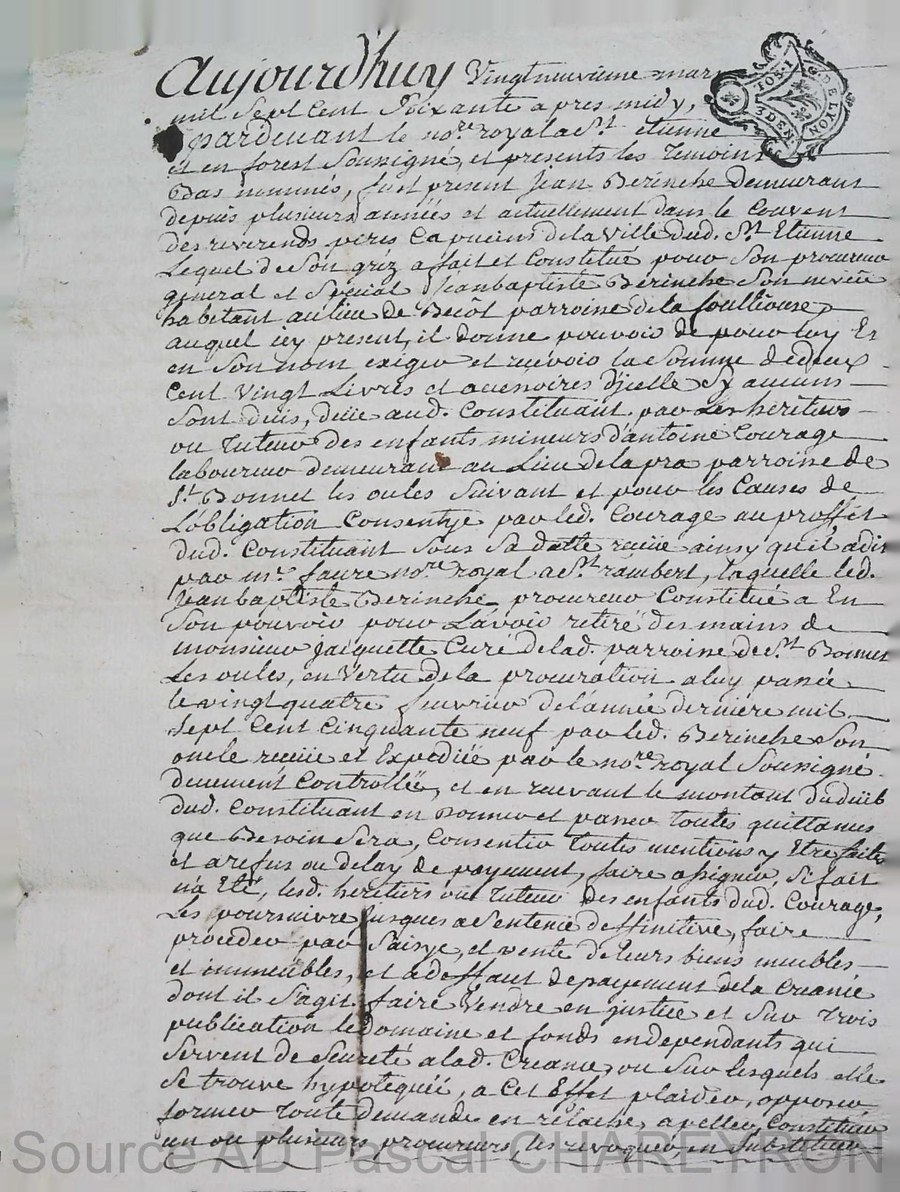 Aujourd'huy Vingtneuvième mars
mil Sept Cent Soixante apres midy,
pardevant le nore. royal a St. etienne
et en forest Soussigné, et presents les Temoins
Bas nommés, fust present Jean Berinche demeurant
depuis plusieurs années et actuellement dans le Couvent
des reverends peres Capucins dela ville dud. St. Etienne
Lequel de Son gréz a fait et Constitué pour Son procureur
general et Special Jean baptiste Berinche Son neveu
habitant au lieu de Becôt parroisse dela foullouse,
auquel icy present, il donne pouvoir de pour luy Et
en Son nom exiger et recevoir la Somme de deux
Cent Vingt Livres et accessoires d'jcelle Sy aucuns
Sont deüs, deüe aud. Constituant par Les heritiers
ou Tuteur des enfants mineurs d'antoine Courage
laboureur demeurant au Lieu de la pra parroisse de
St. Bonnet les oules Suivant et pour les Causes de
L'obligation Consentye par led. Courage au proffit
dud. Constituant Sous Sa datte recüe ainsy qu'il a dit
par mre. faure nore. royal a St. rambert, laquelle led.
Jean baptiste Berinche procureur Constitué a En
Son pouvoir pour L'avoir retiré des mains de
monsieur Jaquette Curé delad. parroisse de St. Bonnet
Les oules, en Vertu de la procuration a luy passée
le vingt quatre fevrier de l'année derniere mil
Sept Cent Cinquante neuf par led. Berinche Son
oncle recüe et Expediée par le nore. royal Soussigné
deuement Controllée, et en recevant le montant du deüb
dud. Constituant en Donner et passer Toutes quittances
que Besoin Sera, Consentir Toutes mentions y Etre faites
et a refus ou delay de payement, faire assigner, Si fait
n'a Eté, lesd. heritiers ou Tuteur des enfants dud. Courage,
Les poursuivre Jusques a Sentence deffinitive, faire
proceder par Saisye, et vente de leurs biens meubles
et immeubles, et a deffaut de payement dela Creance
dont il S'agit faire Vendre en justice et Sur Trois
publication le domaine et fonds en dependants qui
Servent de Seureté a lad. Creance, ou Sur lesquels elle
Se trouve hypotequée, a Cet Effet plaider, opposer
former Toute demande en relache, apeller, Constituer
un ou plusieurs procureurs, les revoquer, en Substituer
G. DE LYON
3 DEN.
Source AD Pascal CHAREYRON